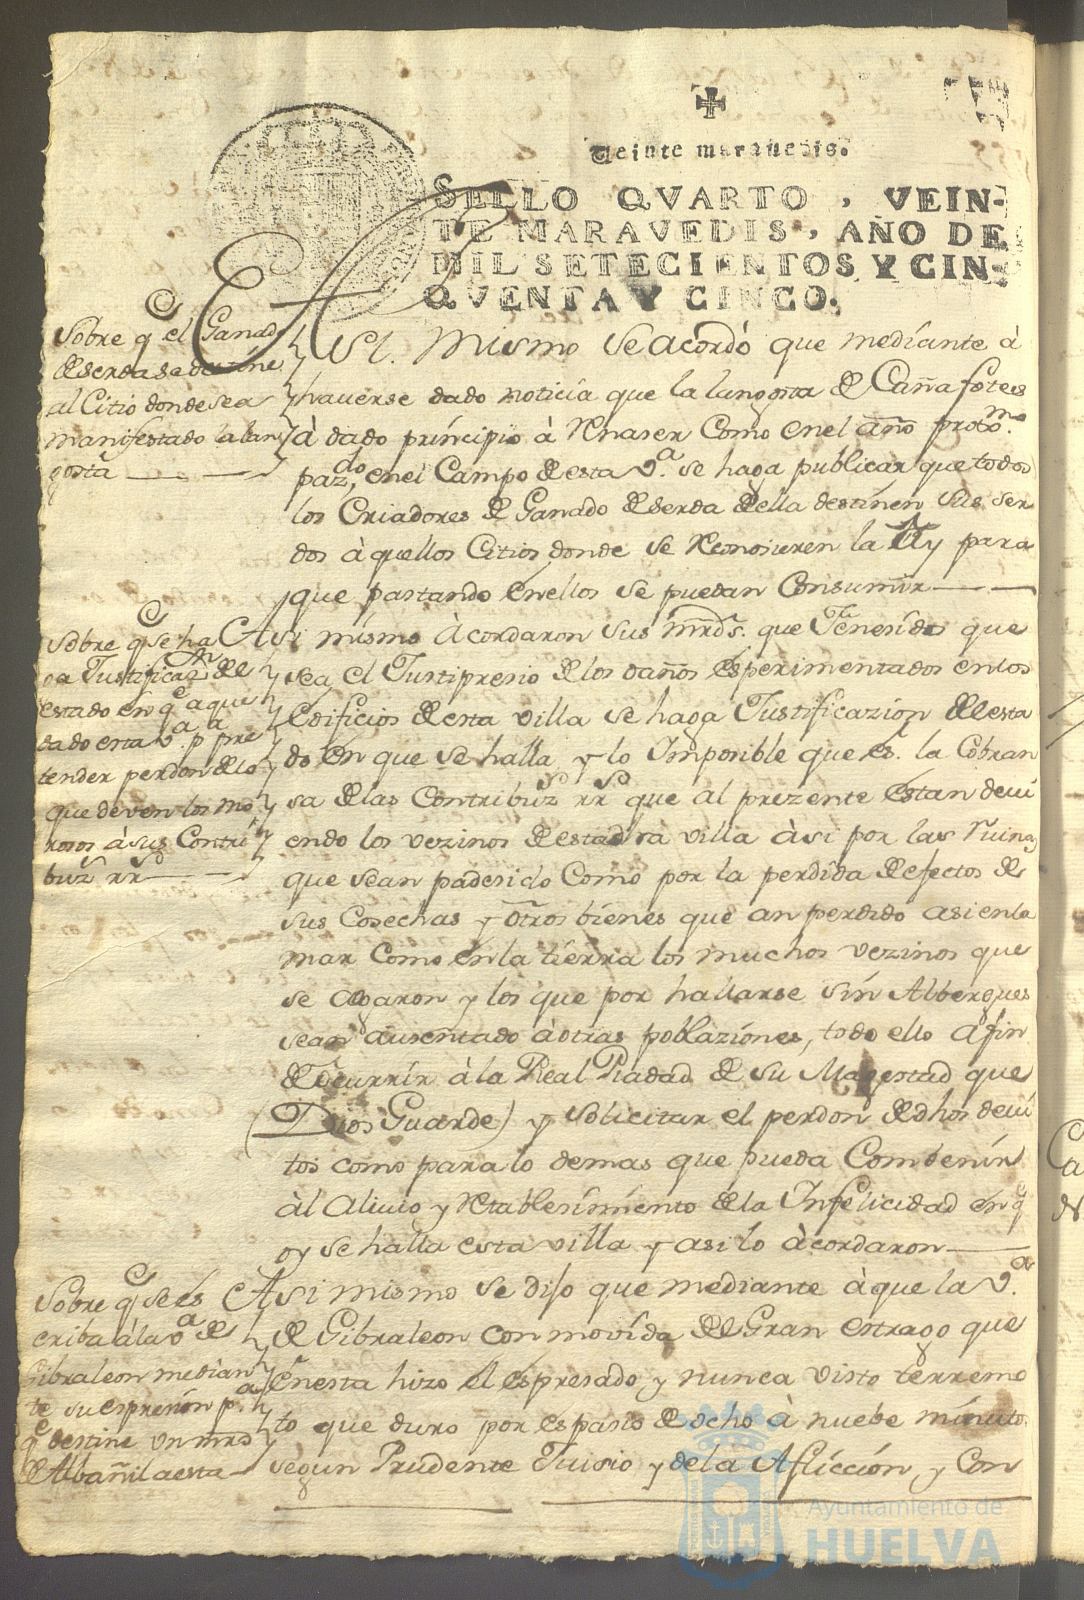 Veinte maravedis.
SELLO QVARTO, VEIN-
TE MARAVEDIS, AÑO DE
MIL SETECIENTOS Y CIN-
QVENTA Y CINCO.
Sobre q el Ganado
de serda se destine
al Citio donde sea
manifestado la lan
gosta
Asi. Mismo se acordò que mediante à
haverse dado noticia que la langosta de Cañafotes
à dado prinsipio à Renaser Como en el año proxmo.
pazdo, en el Campo de esta Va. se haga publicar que todos
los Criadores de Ganado de serda de ella destinen sus ser
dos à quellos Citios donde se Reconosieren la Ay para
que pastando en ellos se puedan Consumir
Sobre q se ha
ga Justificazn de el
estado en qe a que
dado esta Va. pa pre
tender perdon de lo
que deven los mo
rosos à sus Contri
buz rrs
Asi mismo Acordaron sus mrds. que Fenesido que
sea el Justipresio de los daños esperimentados en los
edificios de esta villa se haga Justificazion de el esta
do en que se halla, y lo Imposible que es. la Cobran
sa de las Contribuzs rrs que al prezente estan devi
endo los vezinos de esta dra villa àsi por las ruinas
que sean padesido Como por la perdida de efectos de
sus Cosechas y otros bienes que an perdido asi en la
mar Como en la tierra los muchos vezinos que
se aogaron y los que por hallarse sin Albergues
sean ausentado à otras poblaziones, todo ello a fin
de ocurrir à la Real Piadad de su Magestad que
(Dios Guarde) y solicitar el perdon de dhos devi
tos como para lo demas que pueda Combenir
àl Alivio y Retablesimiento de la Infelicidad en qe
oy se halla esta villa y asi lo àcordaron
Sobre q se es
criba à la va de
Gibraleon median
te su espresion pa.
qe destine un mro
de Albañil a esta
Asi mismo se dijo que mediante à que la Va.
de Gibraleon con movida de el Gran estrago que
en esta hizo el espresado y nunca visto terremo
to que duro por espasio de ocho à nuebe minutos
segun Prudente Juisio y de la Aflicción, y Con
Ayuntamiento de
HUELVA